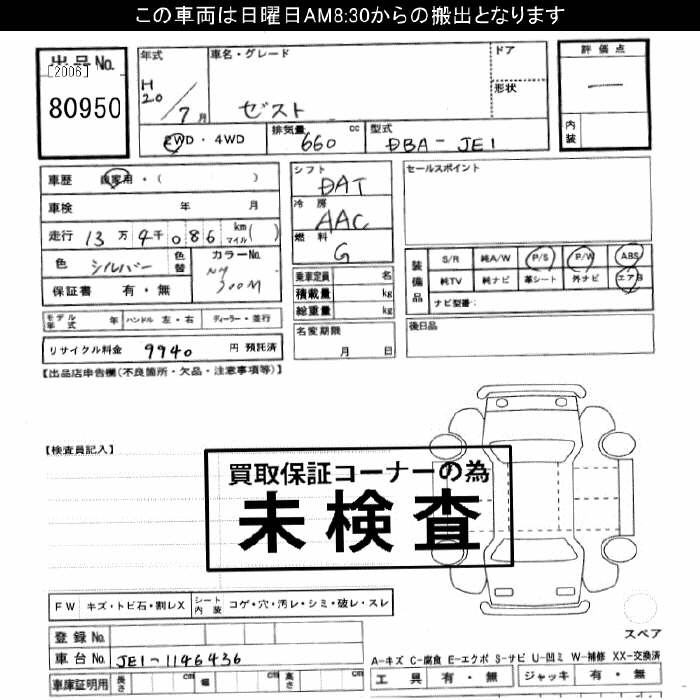 この車両は日曜日AM8:30からの搬出となります
出品No.
[2006]
80950
年式
H20/7月
車名・グレード
ゼスト
ドア
形状
評価点
内装
2WD・4WD
排気量 660 cc
型式 DBA-JE1
車歴 自家用・( )
車検 年 月
走行 13万4千086 km(マイル)
色 シルバー 色替
カラーNo. NH700M
保証書 有・無
シフト DAT
冷房 AAC
燃料 G
乗車定員 名
積載量 kg
総重量 kg
名変期限
月 日
セールスポイント
装備品
S/R 純A/W P/S P/W ABS
純TV 純ナビ 革シート 外ナビ エアB
ナビ型番:
後日品
モデル年式 年 ハンドル 左・右 ディーラー・並行
リサイクル料金 9940 円 預託済
【出品店申告欄(不良箇所・欠品・注意事項等)】
【検査員記入】
買取保証コーナーの為
未検査
FW キズ・トビ石・割レX シート内装 コゲ・穴・汚レ・シミ・破レ・スレ
登録No.
車台No. JE1-1146436
車庫証明用 長さ cm 幅 cm 高さ cm
スペア
A-キズ C-腐食 E-エクボ S-サビ U-凹ミ W-補修 XX-交換済
工具 有・無 ジャッキ 有・無